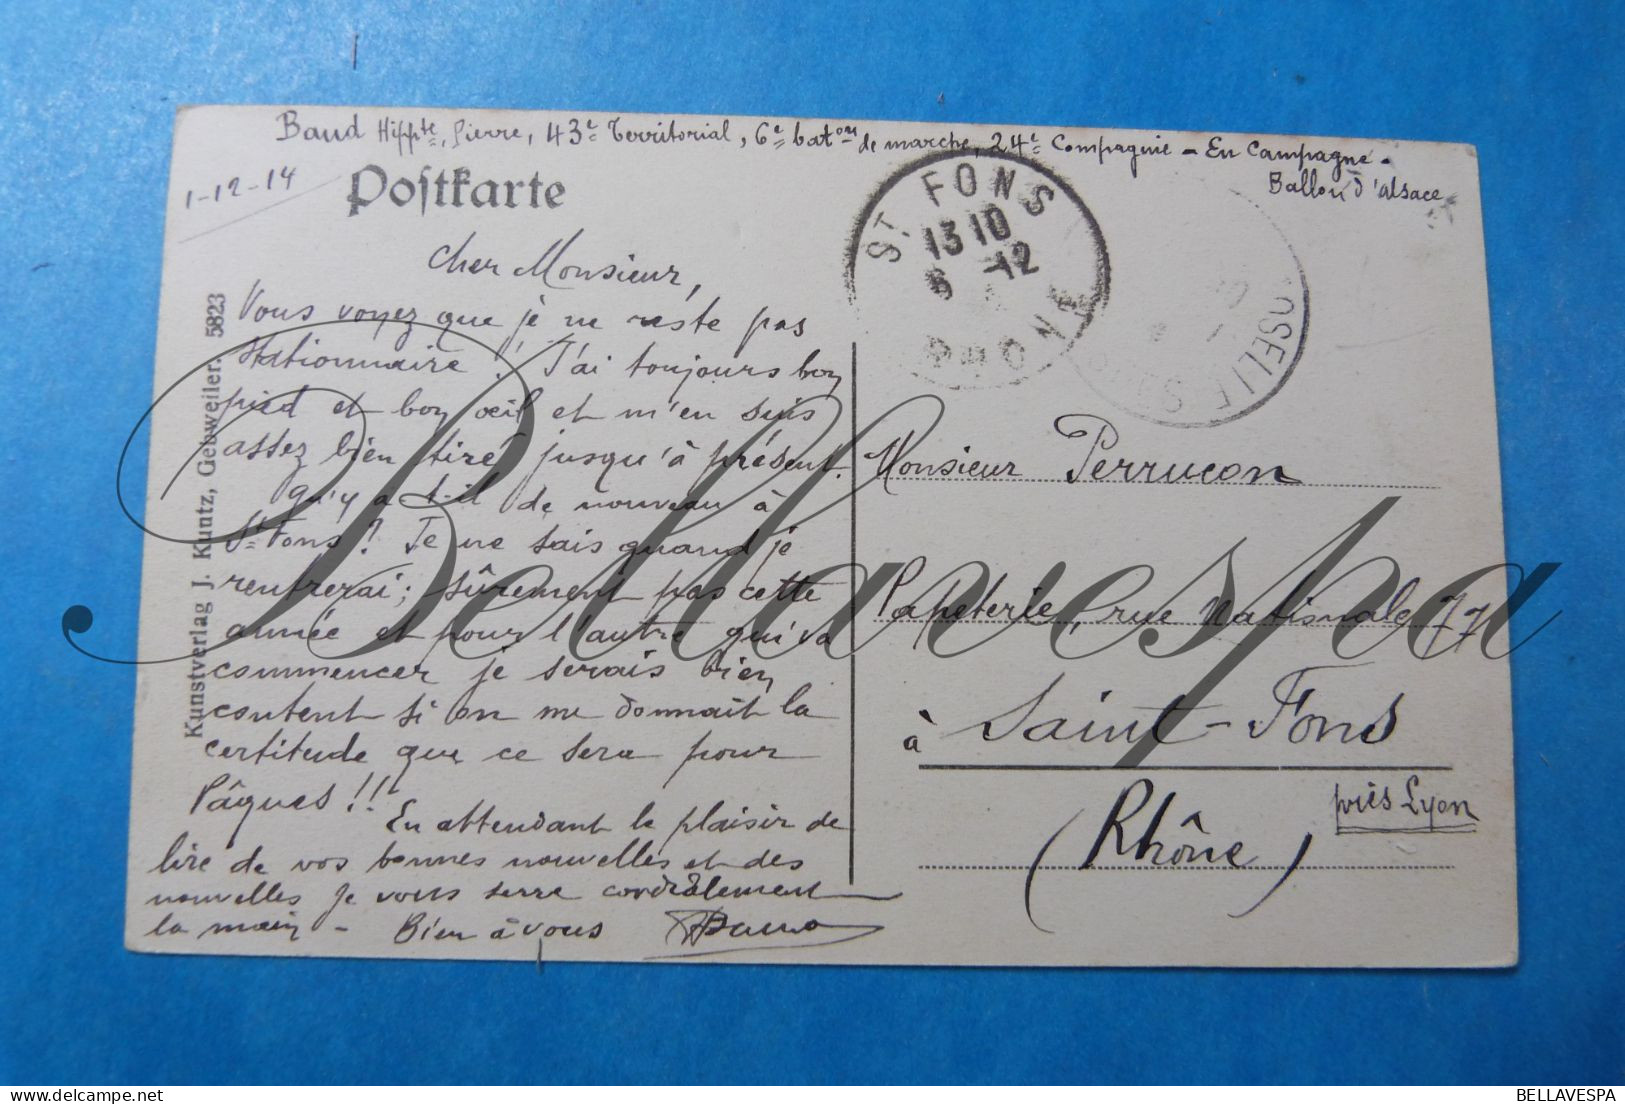 Baud Hippte, Pierre, 43e Territorial, 6e baton de marche, 24e Compagnie - En Campagne -
Ballon d'Alsace
1-12-14
Postkarte
Cher Monsieur,
Vous voyez que je ne reste pas
stationnaire ! J'ai toujours bon
pied et bon œil et m'en suis
assez bien tiré jusqu'à présent.
Qu'y a t-il de nouveau à
St Fons ? Je ne sais quand je
rentrerai ; sûrement pas cette
année et pour l'autre qui va
commencer je serais bien
content si on me donnait la
certitude que ce sera pour
Pâques !!
En attendant le plaisir de
lire de vos bonnes nouvelles et des
nouvelles je vous serre cordialement
la main - Bien à vous
Baud
Kunstverlag J. Kuntz, Gebweiler. 5823
ST FONS
13 10
6 -12
RHONE
Monsieur Perrucon
Papeterie, rue Nationale 77
à Saint-Fons
près Lyon
(Rhône)
Bellavespa
BELLAVESPA